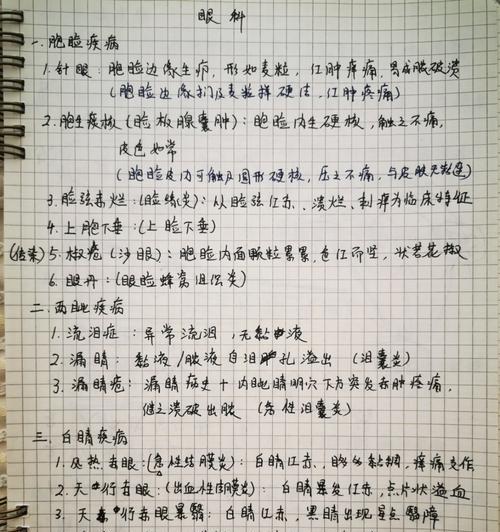 眼科
一. 胞睑疾病
1. 针眼: 胞睑边缘生疖, 形如麦粒, 红肿痒痛, 易成脓破溃
(胞睑边缘扪及麦粒样硬结, 红肿疼痛)
2. 胞生痰核 (睑板腺囊肿): 胞睑内生硬核, 触之不痛,
皮色如常
(胞睑皮内可触及圆形硬核, 压之不痛, 与皮肤无粘连)
3. 睑弦赤烂: (睑缘炎): 以睑弦红赤、溃烂、刺痒为临床特征
4. 上胞下垂: (上睑下垂)
(传染) 5. 椒疮 (沙眼): 胞睑内面颗粒累累, 色红而坚, 状若花椒
6. 眼丹: (眼睑蜂窝组织炎)
二. 两眦疾病
1. 流泪症: 异常流泪, 无黏液
2. 漏睛: 黏液/脓液自泪孔溢出 (泪囊炎)
3. 漏睛疮: 漏睛症史 + 内眦睛明穴下方突发赤肿疼痛,
继之溃破出脓 (急性泪囊炎)
三. 白睛疾病
1. 风热赤眼: (急性结膜炎): 白睛红赤, 眵多黏稠, 痒痛交作
2. 天行赤眼: (出血性结膜炎): 白睛暴发红赤, 点片状溢血
3. 天行赤眼暴翳: 白睛红赤, 黑睛出现星点翳障